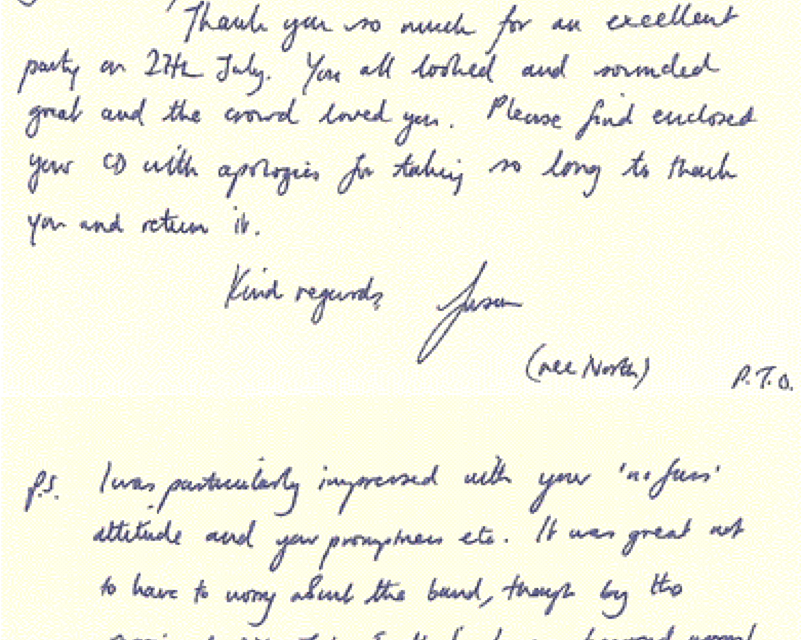 Thank you so much for an excellent
party on 27th July. You all looked and sounded
great and the crowd loved you. Please find enclosed
your CD with apologies for taking so long to thank
you and return it.
Kind regards, Susan
(nee North) P.T.O.
P.S. I was particularly impressed with your 'no fuss'
attitude and your promptness etc. It was great not
to have to worry about the band, though by the